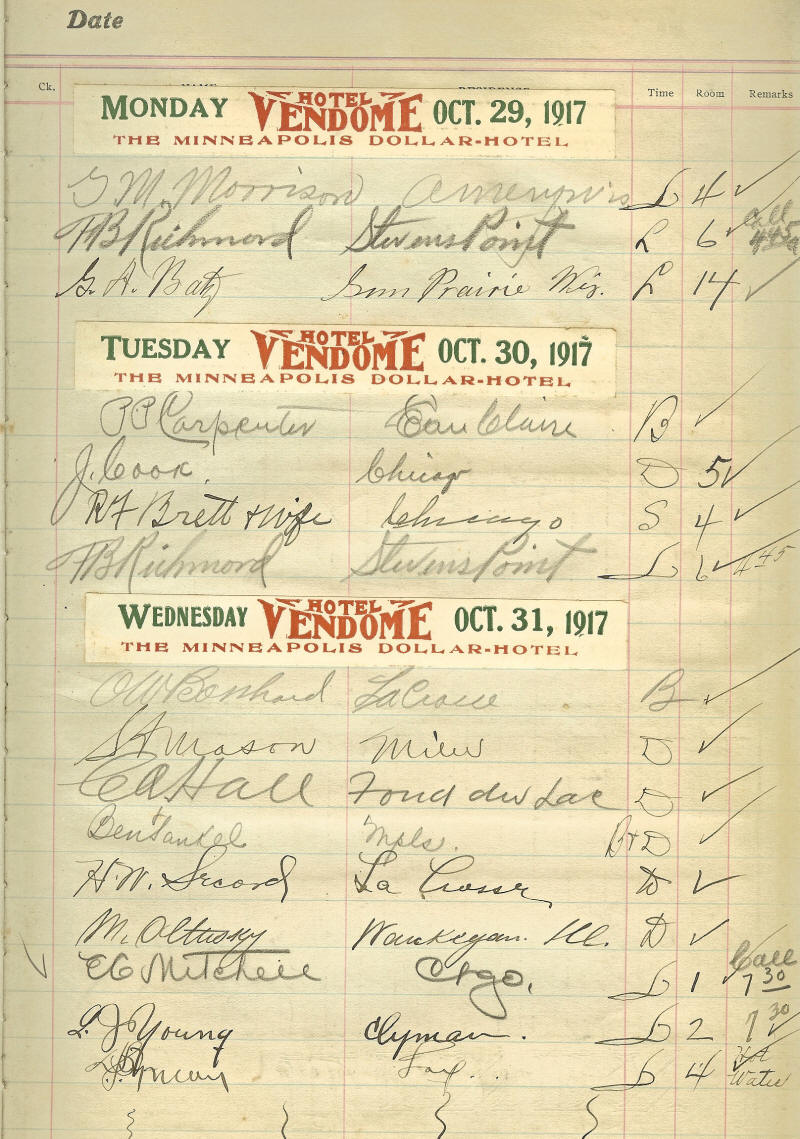 Date
Ck. NAME RESIDENCE Time Room Remarks
MONDAY HOTEL VENDOME OCT. 29, 1917
THE MINNEAPOLIS DOLLAR-HOTEL
G M. Morrison L 4 ✓
F B Richmond Stevens Point L 6 ✓ Call 445
G. A. Batz Sun Prairie Wis. L 14 ✓
TUESDAY HOTEL VENDOME OCT. 30, 1917
THE MINNEAPOLIS DOLLAR-HOTEL
P.P. Carpenter Eau Claire B ✓
J. Cook. Chicago D 5 ✓
R F Brett & Wife Chicago S 4 ✓
F B Richmond Stevens Point L 6 ✓ 445
WEDNESDAY HOTEL VENDOME OCT. 31, 1917
THE MINNEAPOLIS DOLLAR-HOTEL
O W Bonhard La Crosse B ✓
S A Mason Milw D ✓
E A Hall Fond du Lac D ✓
Ben Mpls. B+D ✓
H. W. Secord La Crosse D ✓
M. Oltusky Waukegan. Ill. D ✓
✓ E C Mitchell Cgo. L 1 ✓ Call 7 30
L. J Young Clyman. L 2 7 30 ✓
L 4 ✓ Hot Water